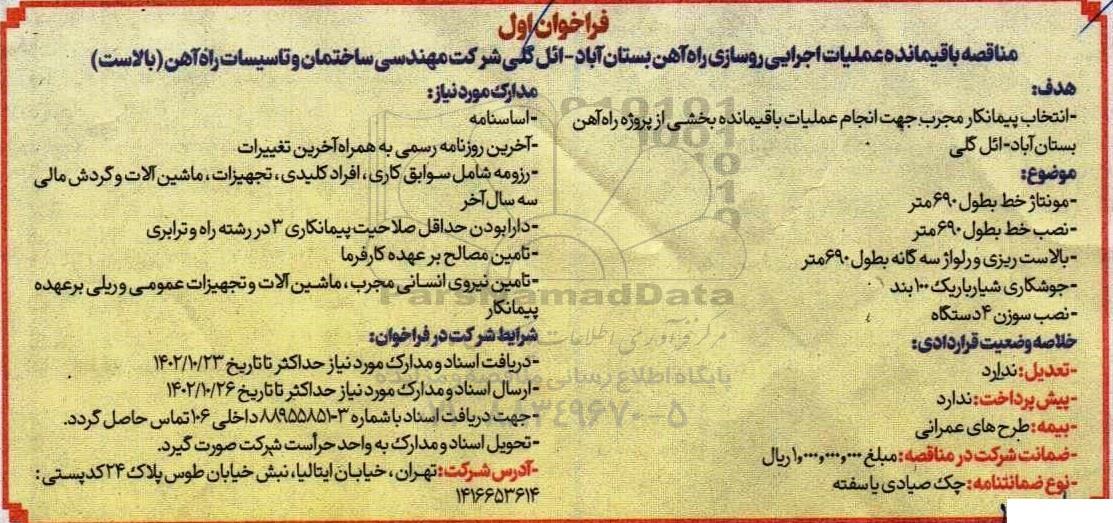 فراخوان اول
مناقصه باقیمانده عملیات اجرایی روسازی راه‌آهن بستان‌آباد-ائل گلی شرکت مهندسی ساختمان و تاسیسات راه‌آهن (بالاست)
هدف:
-انتخاب پیمانکار مجرب جهت انجام عملیات باقیمانده بخشی از پروژه راه‌آهن
بستان‌آباد-ائل گلی
موضوع:
-مونتاژ خط بطول ۶۹۰متر
-نصب خط بطول ۶۹۰متر
-بالاست ریزی و رلواژ سه گانه بطول ۶۹۰متر
-جوشکاری شیارباریک ۱۰۰بند
-نصب سوزن ۴دستگاه
خلاصه وضعیت قراردادی:
-تعدیل: ندارد
-پیش پرداخت: ندارد
-بیمه: طرح های عمرانی
-ضمانت شرکت در مناقصه: مبلغ ۱,۰۰۰,۰۰۰,۰۰۰ ریال
-نوع ضمانتنامه: چک صیادی یا سفته
مدارک مورد نیاز:
-اساسنامه
-آخرین روزنامه رسمی به همراه آخرین تغییرات
-رزومه شامل سوابق کاری، افراد کلیدی، تجهیزات، ماشین آلات و گردش مالی
سه سال آخر
-دارا بودن حداقل صلاحیت پیمانکاری ۳ در رشته راه و ترابری
-تامین مصالح بر عهده کارفرما
-تامین نیروی انسانی مجرب، ماشین آلات و تجهیزات عمومی و ریلی بر عهده
پیمانکار
شرایط شرکت در فراخوان:
-دریافت اسناد و مدارک مورد نیاز حداکثر تا تاریخ ۱۴۰۲/۱۰/۲۳
-ارسال اسناد و مدارک مورد نیاز حداکثر تا تاریخ ۱۴۰۲/۱۰/۲۶
-جهت دریافت اسناد با شماره ۳-۸۸۹۵۵۸۵۱ داخلی ۱۰۶ تماس حاصل گردد.
-تحویل اسناد و مدارک به واحد حراست شرکت صورت گیرد.
-آدرس شرکت: تهران، خیابان ایتالیا، نبش خیابان طوس پلاک ۲۴ کدپستی:
۱۴۱۶۶۵۳۶۱۴
ParsNamadData
مرکز فرآوری اطلاعات
پایگاه اطلاع رسانی